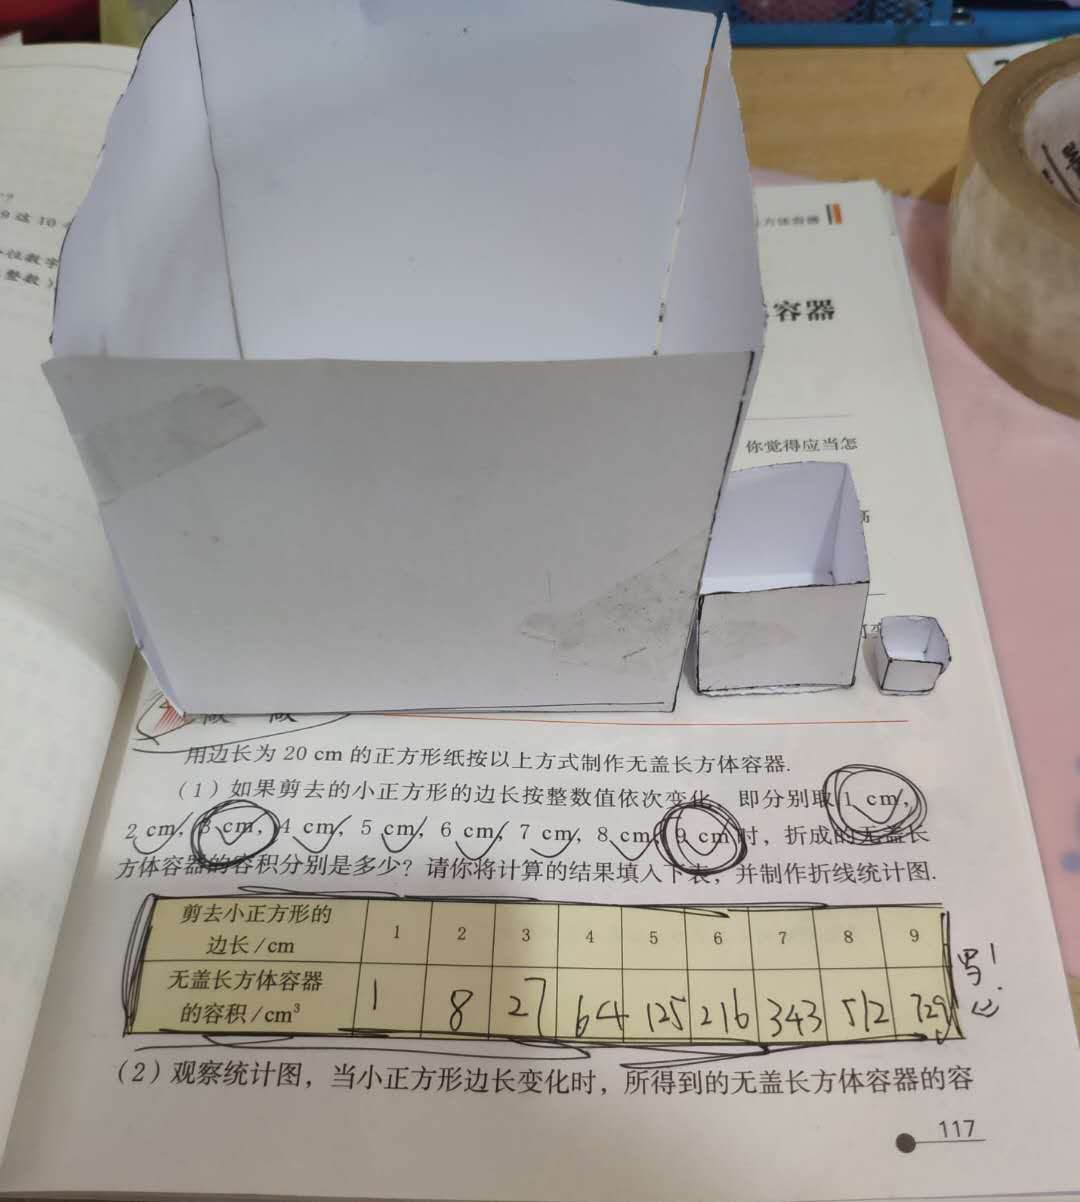 9 这 10
位数字
整数)
方体容器
容器
你觉得应当怎
做 一 做
用边长为 20 cm 的正方形纸按以上方式制作无盖长方体容器.
(1) 如果剪去的小正方形的边长按整数值依次变化，即分别取 1 cm,
2 cm, 3 cm, 4 cm, 5 cm, 6 cm, 7 cm, 8 cm, 9 cm 时，折成的无盖长
方体容器的容积分别是多少？请你将计算的结果填入下表，并制作折线统计图.
剪去小正方形的边长/cm 1 2 3 4 5 6 7 8 9
无盖长方体容器的容积/cm³ 1 8 27 64 125 216 343 512 729
(2) 观察统计图，当小正方形边长变化时，所得到的无盖长方体容器的容
117